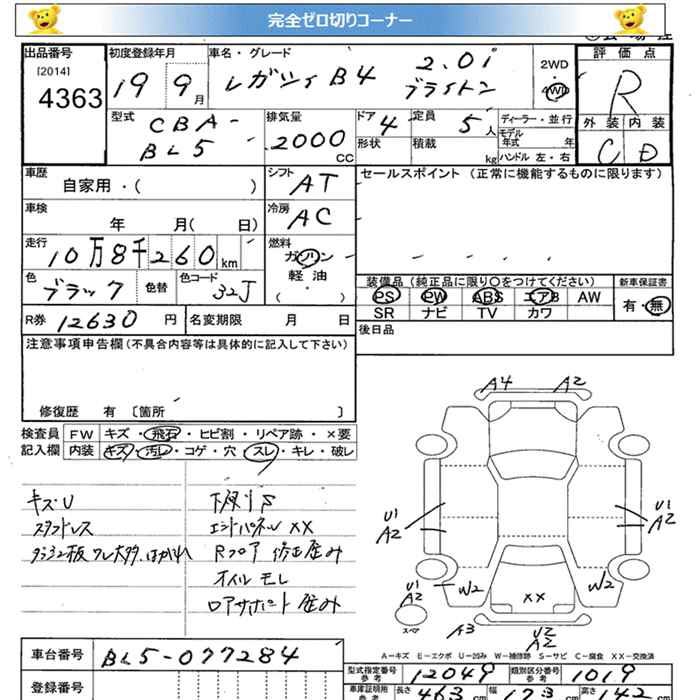 完全ゼロ切りコーナー
出品番号
[2014]
4363
初度登録年月
19 9月
車名・グレード
レガシィB4
2.0i
ブライトン
2WD
4WD
評価点
R
外装 内装
C D
型式
CBA-
BL5
排気量
2000
CC
ドア 4
形状
定員 5人
積載 kg
ディーラー・並行
モデル
年式 年
ハンドル 左・右
車歴
自家用・( )
シフト
AT
セールスポイント (正常に機能するものに限ります)
車検
年 月( 日)
冷房
AC
走行
10万8千260km
燃料
ガソリン
軽油
( ・ )
色
ブラック
色替
色コード
32J
装備品 (純正品に限り○をつけてください)
PS PW ABS エアB AW
SR ナビ TV カワ
新車保証書
有・無
R券 12630 円
名変期限 月 日
後日品
注意事項申告欄(不具合内容等は具体的に記入して下さい)
修復歴 有 〔箇所 〕
検査員
記入欄
FW キズ・飛石・ヒビ割・リペア跡・×要
内装 キズ・汚レ・コゲ・穴・スレ・キレ・破レ
キズU
スタッドレス
下廻りS
エンドパネルXX
Rフロア 修正歪み
オイルモレ
ロアサポート歪み
A4 A2
U1
A2
U1
A2
U1
A2
スペア
W2
W2
XX
A3
U2
A2
A-キズ E-エクボ U-凹み W-補修跡 S-サビ C-腐食 XX-交換済
車台番号
BL5-077284
登録番号
型式指定番号
参考
12049
類別区分番号
参考
1019
車庫証明用
参考
長さ 463 cm 幅 173 cm 高さ 142 cm